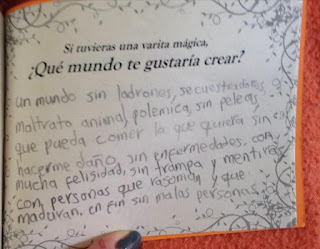 Si tuvieras una varita mágica,
¿Qué mundo te gustaría crear?
un mundo sin ladrones, secuestradores,
maltrato animal, polemica, sin peleas
que pueda comer lo que quiera sin
hacerme daño, sin enfermedades, con
mucha felisidad, sin trampa y mentiras
con personas que rasonan y que
maduran, en fin sin malas personas